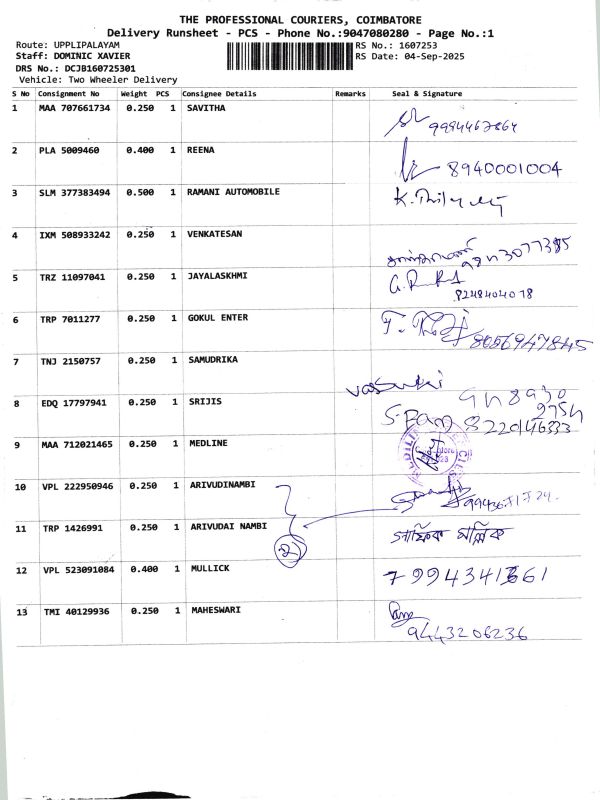 THE PROFESSIONAL COURIERS, COIMBATORE
Delivery Runsheet - PCS - Phone No.:9047080280 - Page No.:1
Route: UPPLIPALAYAM
RS No.: 1607253
Staff: DOMINIC XAVIER
RS Date: 04-Sep-2025
DRS No.: DCJB160725301
Vehicle: Two Wheeler Delivery
S No Consignment No Weight PCS Consignee Details Remarks Seal & Signature
1 MAA 707661734 0.250 1 SAVITHA
9994467864
2 PLA 5009460 0.400 1 REENA
8940001004
3 SLM 377383494 0.500 1 RAMANI AUTOMOBILE
4 IXM 508933242 0.250 1 VENKATESAN
5 TRZ 11097041 0.250 1 JAYALASKHMI
8248404078
6 TRP 7011277 0.250 1 GOKUL ENTER
8056947845
7 TNJ 2150757 0.250 1 SAMUDRIKA
vasuki
8 EDQ 17797941 0.250 1 SRIJIS
8220146333
9 MAA 712021465 0.250 1 MEDLINE
10 VPL 222950946 0.250 1 ARIVUDINAMBI
11 TRP 1426991 0.250 1 ARIVUDAI NAMBI
2
মল্লিক
12 VPL 523091084 0.400 1 MULLICK
13 TMI 40129936 0.250 1 MAHESWARI
9443206236